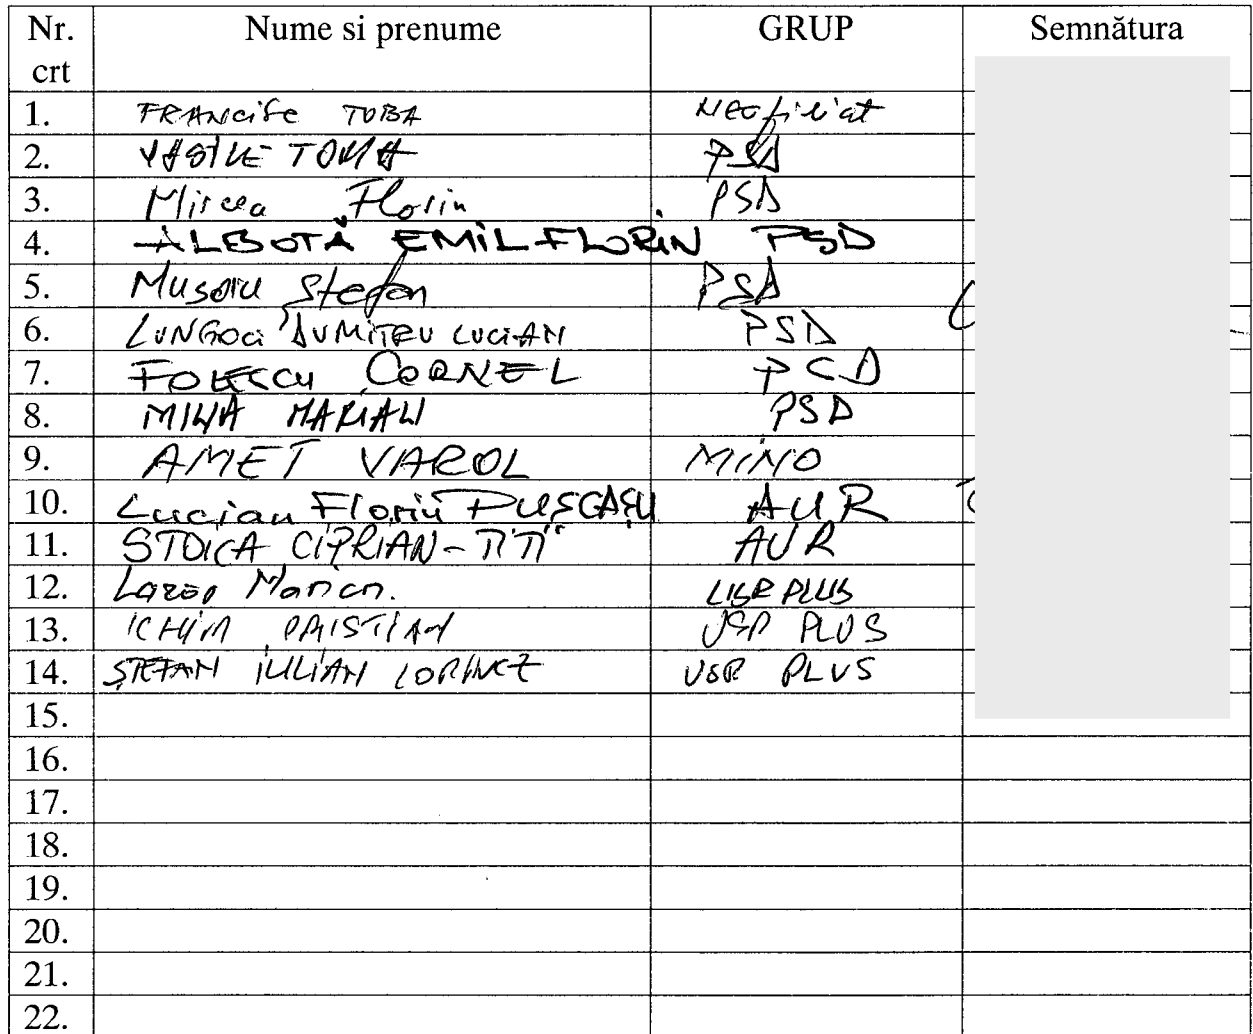 Nr. crt Nume si prenume GRUP Semnătura
1. FRANCISC TOBA Neafiliat
2. VASILE TOMA PSD
3. Mircea Florin PSD
4. ALBOTĂ EMIL-FLORIN PSD
5. Musoiu Ștefan PSD
6. LUNGOCI DUMITRU LUCIAN PSD
7. FOLESCU CORNEL PSD
8. MIHA MARIAN PSD
9. AMET VAROL MINO
10. Lucian Florin PUȘCAȘU AUR
11. STOICA CIPRIAN-TITI AUR
12. Lazăr Marian. USR PLUS
13. ICHIM CRISTIAN USR PLUS
14. ȘTEFAN IULIAN LORINCZ USR PLUS
15.
16.
17.
18.
19.
20.
21.
22.